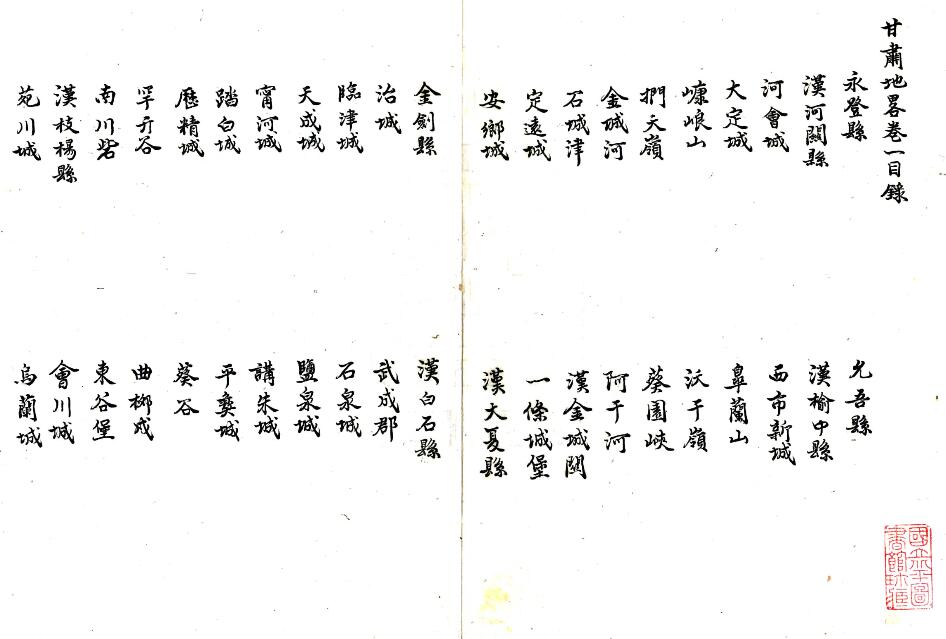 甘肅地畧卷一目錄
永登縣 允吾縣
漢河關縣 漢榆中縣
河會城 西市新城
大定城 臯蘭山
嵻崀山 沃干嶺
捫天嶺 葵園峽
金城河 阿干河
石城津 漢金城關
定遠城 一條城堡
安鄉城 漢大夏縣
金劍縣 漢白石縣
治城 武成郡
臨津城 石泉城
天成城 鹽泉城
甯河城 講朱城
踏白城 平夷城
歷精城 葵谷
罕幵谷 曲栁戍
南川砦 東谷堡
漢枝楊縣 會川城
苑川城 烏蘭城
國立北平圖
書館